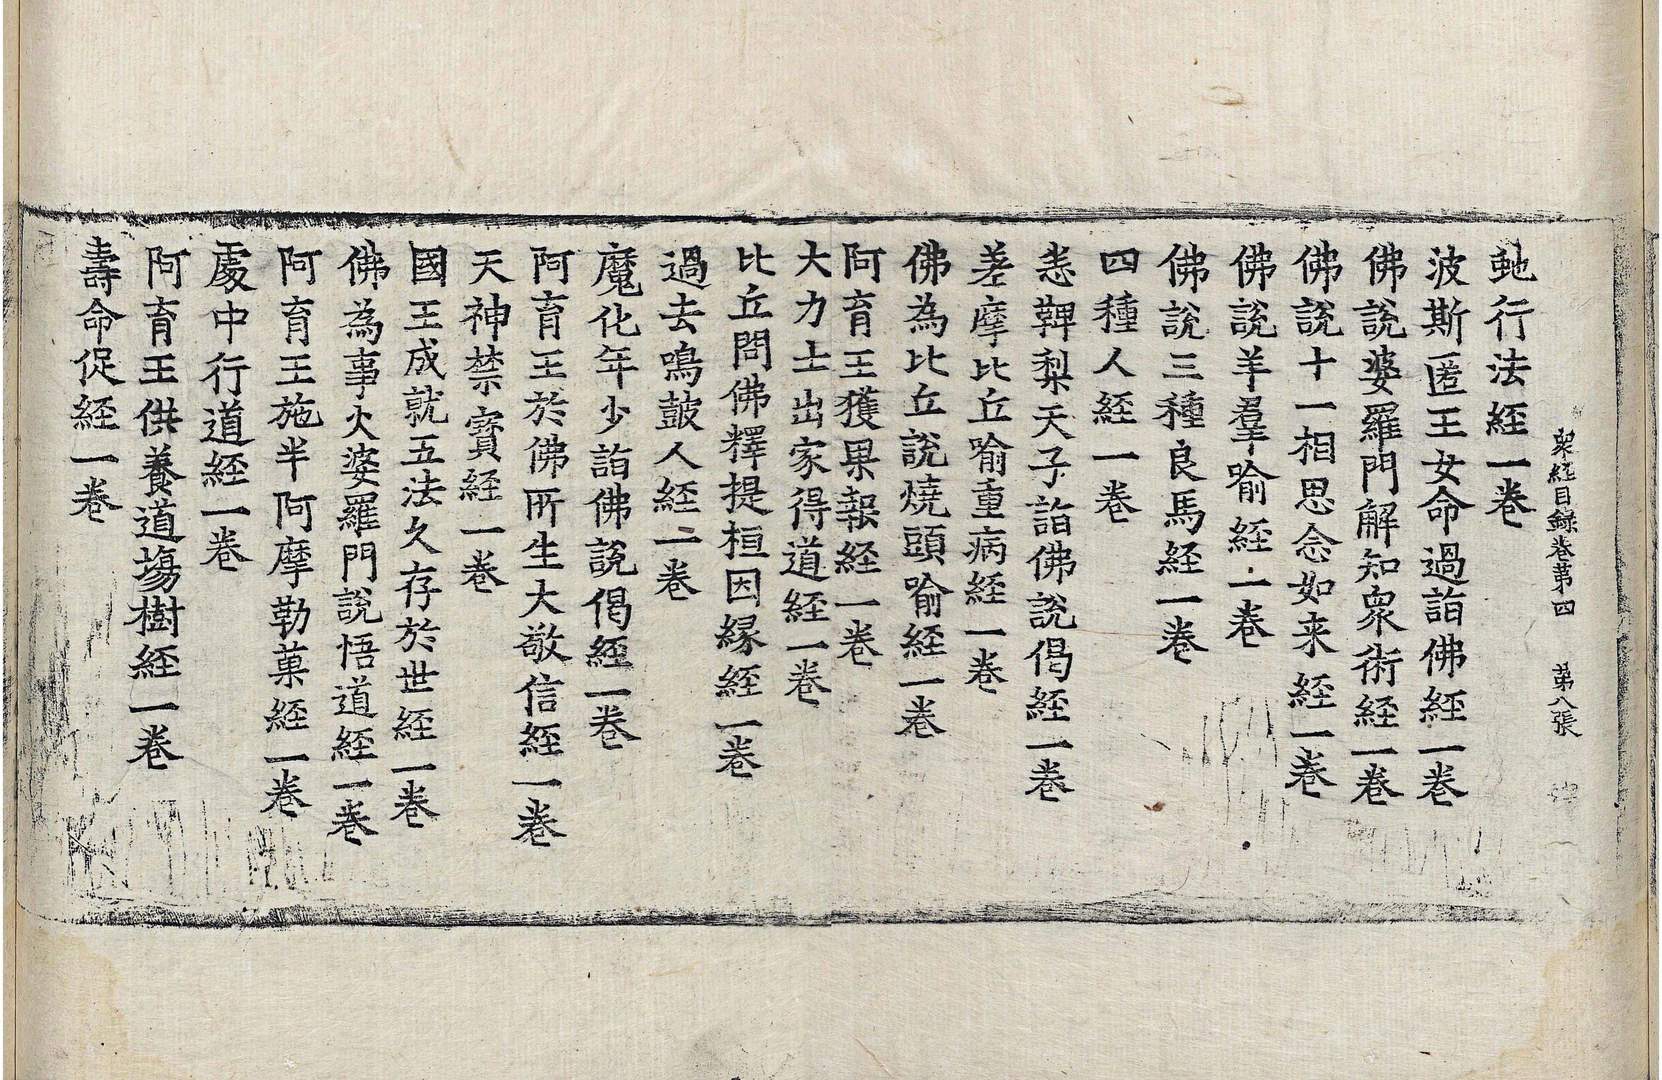 衆経目録卷第四 第八張
虵行法経一卷
波斯匿王女命過詣佛経一卷
佛說婆羅門解知衆術経一卷
佛說十一相思念如来経一卷
佛說羊羣喻経一卷
佛說三種良馬経一卷
四種人経一卷
恚鞞梨天子詣佛說偈経一卷
差摩比丘喻重病経一卷
佛為比丘說燒頭喻経一卷
阿育王獲果報経一卷
大力士出家得道経一卷
比丘問佛釋提桓因縁経一卷
過去鳴皷人経一卷
魔化年少詣佛說偈経一卷
阿育王於佛所生大敬信経一卷
天神禁寳経一卷
國王成就五法久存於世経一卷
佛為事火婆羅門說悟道経一卷
阿育王施半阿摩勒菓経一卷
處中行道経一卷
阿育王供養道塲樹経一卷
壽命促経一卷